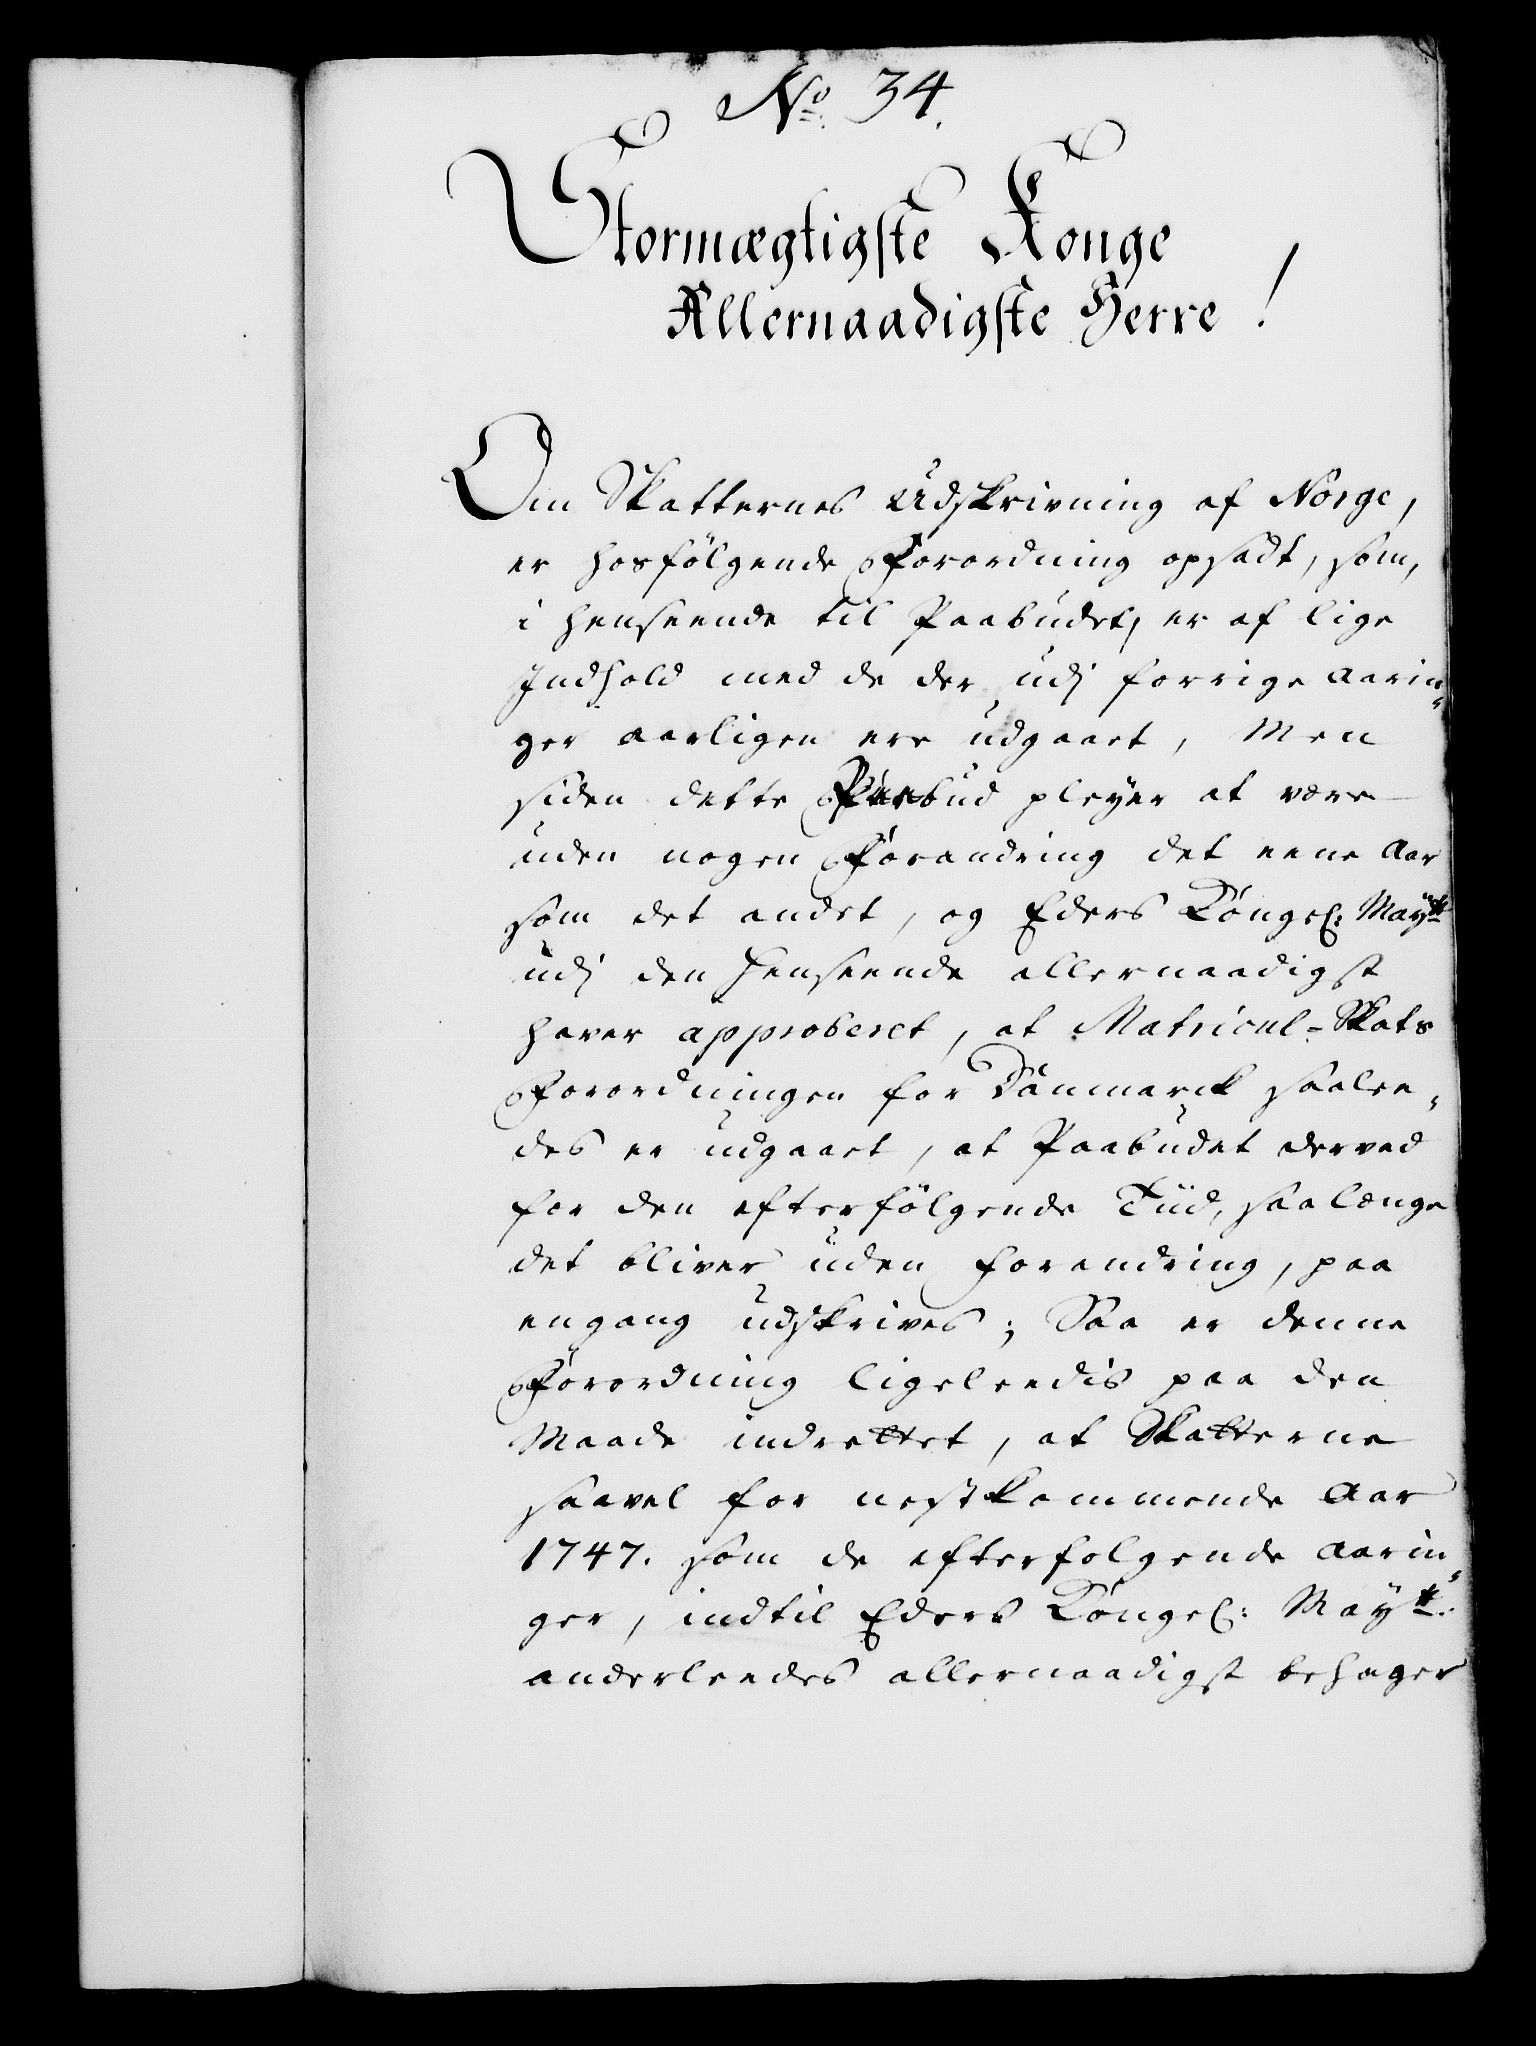 No. 34.
Stormægtigste Konge
Allernaadigste Herre!
Om Skatternes Udskrivning af Norge,
er hosfölgende Forordning opsadt, som,
i henseende til Paabudet, er af lige
Indhold med de der udj forrige Aarin-
ger aarligen ere udgaaet, Men
siden dette Paabud pleyer at være
uden nogen Forandring det eene Aar
som det andet, og Eders Kongel: Maytt
udj den henseende allernaadigst
haver approberet, at Matricul-Skats
Forordningen for Danmarck saalee-
des er udgaaet, at Paabudet derved
for den efterfölgende Tiid, saalænge
det bliver uden forandring, paa
engang udskrives; Saa er denne
Forordning ligeleedis paa den
Maade indrettet, at Skatterne
saavel for nestkommende Aar
1747. som de efterfolgende Aarin-
ger, indtil Eders Kongel: Maytt.
anderleedes allernaadigst behager